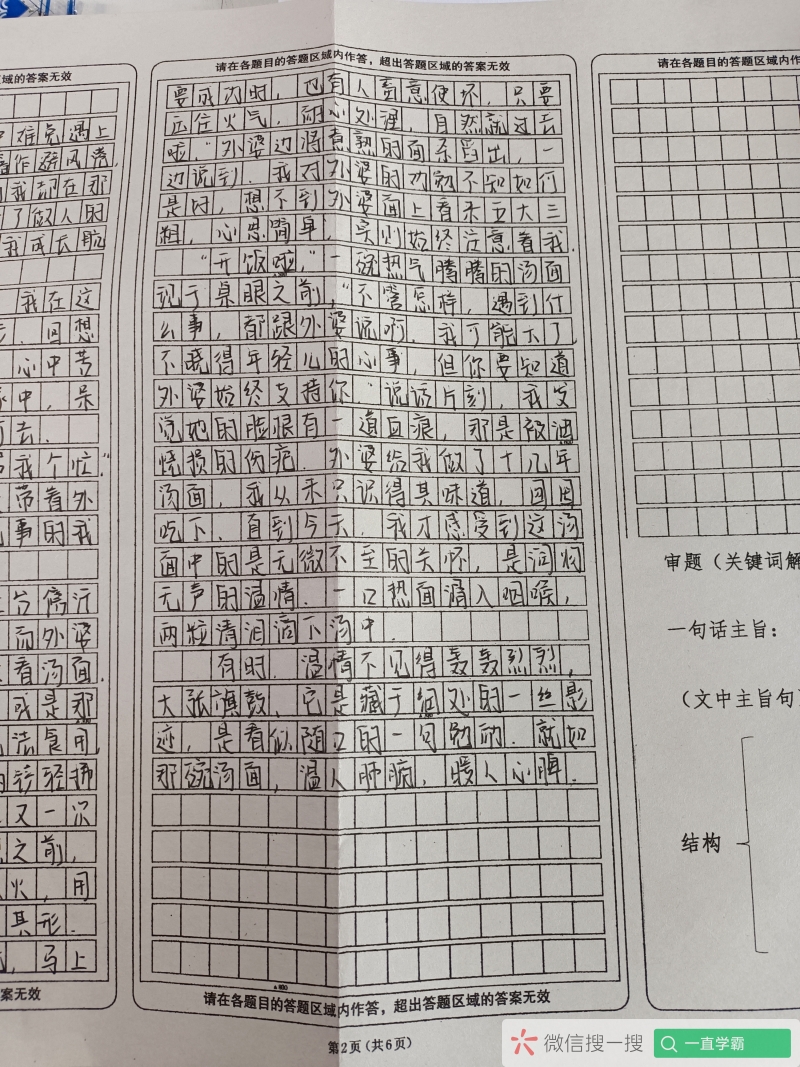 区域的答案无效
难免遇上
作避风港,
我却在那
了做人的
我成长航
我在这
回想
心中苦
中,呆
去.
我个忙."
带着外
事的我
台停汀
而外婆
看汤面.
或是那
法食用,
轻轻拂
又一次
之前,
火,用
具形.
,马上
答案无效
请在各题目的答题区域内作答,超出答题区域的答案无效
要成功时,也有人蓄意使坏,只要
压住火气,耐心处理,自然就过去
啦."外婆边将煮熟的面条舀出,一
边说到.我对外婆的劝勉不知如何
是好,想不到外婆面上看来五大三
粗,心思简单,实则始终注意着我.
"开饭啦,"一碗热气腾腾的汤面
现于桌眼之前,"不管怎样,遇到什
么事,都跟外婆说啊,我可能大了,
不晓得年轻人的心事,但你要知道
外婆始终支持你."说话片刻,我发
觉她的脸很有一道血痕,那是被油
烧损的伤疤.外婆给我做了十几年
汤面,我从来只识得其味道,囫囵
吃下,直到今天,我才感受到这汤
面中的是无微不至的关怀,是润物
无声的温情.一口热面滑入咽喉,
两粒清泪滴下汤中.
有时,温情不见得轰轰烈烈,
大张旗鼓,它是藏于细处的一丝影
迹,是看似随口的一句勉励.就如
那碗汤面,温人肺腑,暖人心脾.
▲800
请在各题目的答题区域内作答,超出答题区域的答案无效
第2页(共6页)
请在各题目的答题区域内作
审题(关键词解
一句话主旨:
(文中主旨句)
结构
微信搜一搜
一直学霸